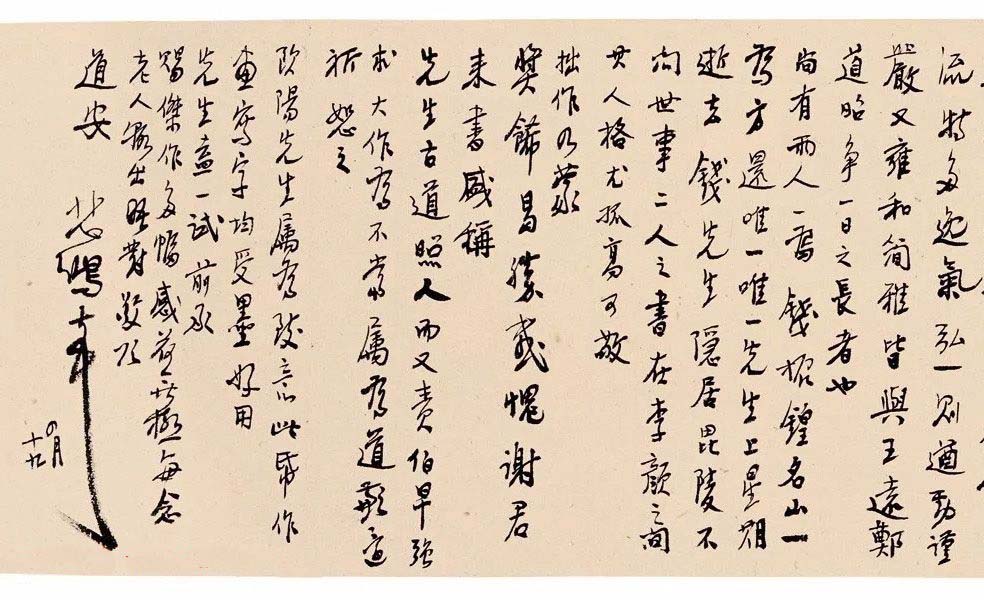 流特多逸氣弘一則遒勁謹
嚴又雍和簡雅皆與王遠鄭
道昭爭一日之長者也
尚有兩人一為錢振鍠名山一
為方還唯一唯一先生上星期
逝去錢先生隱居毘陵不
問世事二人之書在李顏之間
其人格尤孤高可敬
拙作乃蒙
獎飾曷勝感愧謝君
來書盛稱
先生古道照人而又責伯早強
求大作為不當屬為道歉意
祈恕之
歐陽先生屬為致意此帋作
畫寫字均受墨好用
先生盍一試前承
賜傑作多幅感荷無極每念
老人 出 對敬頌
道安
悲鴻
四月
十九